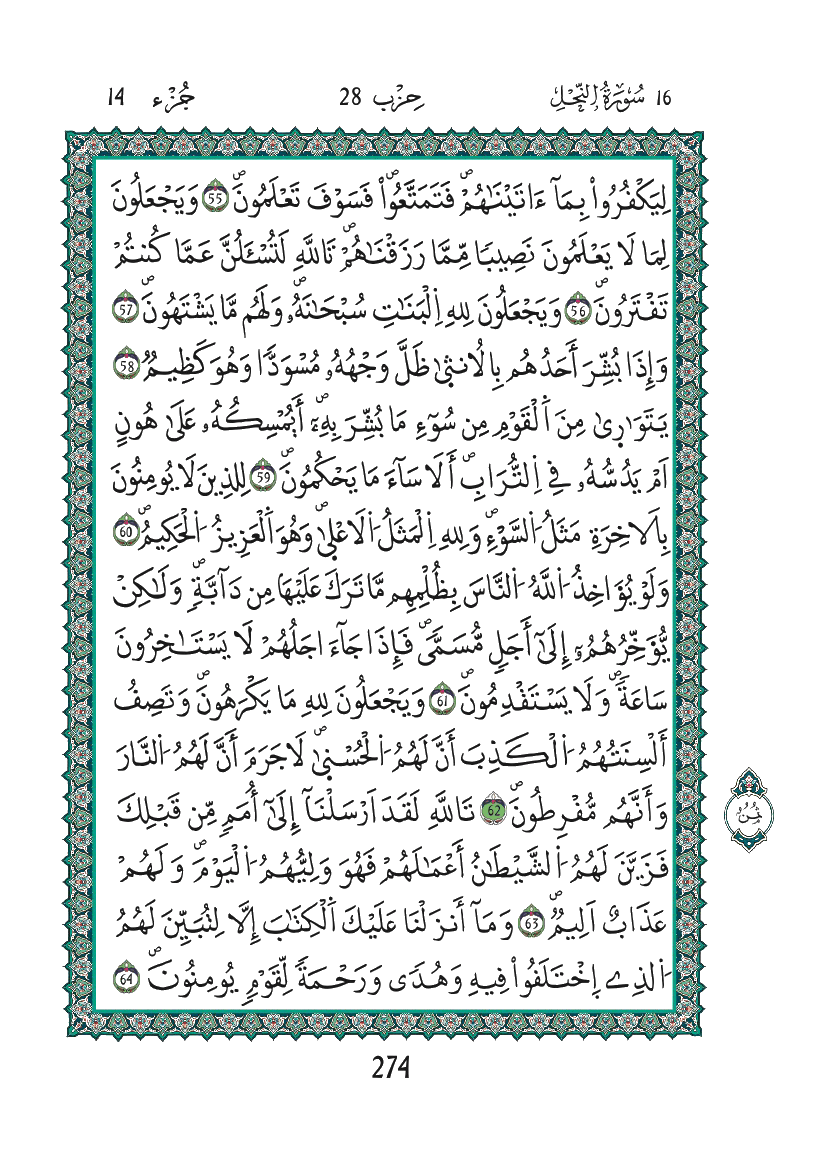 16 سُورَةُ اُ۬لنَّحْلِ حِزْب 28 جُزْء 14
لِيَكْفُرُواْ بِمَآ ءَاتَيْنَٰهُمْۖ فَتَمَتَّعُواْۖ فَسَوْفَ تَعْلَمُونَۖ 55 وَيَجْعَلُونَ
لِمَا لَا يَعْلَمُونَ نَصِيباٗ مِّمَّا رَزَقْنَٰهُمْۖ تَاللَّهِ لَتُسْـَٔلُنَّ عَمَّا كُنتُمْ
تَفْتَرُونَۖ 56 وَيَجْعَلُونَ لِلهِ اِ۬لْبَنَٰتِ سُبْحَٰنَهُۥۖ وَلَهُم مَّا يَشْتَهُونَۖ 57
وَإِذَا بُشِّرَ أَحَدُهُم بِالُانثۭيٰ ظَلَّ وَجْهُهُۥ مُسْوَدّاٗ وَهُوَ كَظِيمٞۖ 58
يَتَوَٰرۭيٰ مِنَ اَ۬لْقَوْمِ مِن سُوٓءِ مَا بُشِّرَ بِهِۦٓۖ أَيُمْسِكُهُۥ عَلَىٰ هُونٍ
اَمْ يَدُسُّهُۥ فِے اِ۬لتُّرَابِۖ أَلَا سَآءَ مَا يَحْكُمُونَۖ 59 لِلذِينَ لَا يُومِنُونَ
بِالَاخِرَةِ مَثَلُ اُ۬لسَّوْءِۖ وَلِلهِ اِ۬لْمَثَلُ اُ۬لَاعْلۭيٰۖ وَهُوَ اَ۬لْعَزِيزُ اُ۬لْحَكِيمُۖ 60
وَلَوْ يُؤَاخِذُ اُ۬للَّهُ اُ۬لنَّاسَ بِظُلْمِهِم مَّا تَرَكَ عَلَيْهَا مِن دَآبَّةٖۖ وَلَٰكِنْ
يُّؤَخِّرُهُمُۥٓ إِلَىٰٓ أَجَلٖ مُّسَمّىٗۖ فَإِذَا جَآءَ اجَلُهُمْ لَا يَسْتَٰخِرُونَ
سَاعَةٗۖ وَلَا يَسْتَقْدِمُونَۖ 61 وَيَجْعَلُونَ لِلهِ مَا يَكْرَهُونَۖ وَتَصِفُ
أَلْسِنَتُهُمُ اُ۬لْكَذِبَ أَنَّ لَهُمُ اُ۬لْحُسْنۭيٰۖ لَا جَرَمَ أَنَّ لَهُمُ اُ۬لنَّارَ
وَأَنَّهُم مُّفْرِطُونَۖ 62 تَاللَّهِ لَقَدَ اَرْسَلْنَآ إِلَىٰٓ أُمَمٖ مِّن قَبْلِكَ
فَزَيَّنَ لَهُمُ اُ۬لشَّيْطَٰنُ أَعْمَٰلَهُمْ فَهُوَ وَلِيُّهُمُ اُ۬لْيَوْمَۖ وَلَهُمْ
عَذَابٌ اَلِيمٞۖ 63 وَمَآ أَنزَلْنَا عَلَيْكَ اَ۬لْكِتَٰبَ إِلَّا لِتُبَيِّنَ لَهُمُ
اُ۬لذِے اِ۪خْتَلَفُواْ فِيهِ وَهُدىٗ وَرَحْمَةٗ لِّقَوْمٖ يُومِنُونَۖ 64
ثُمُن
274